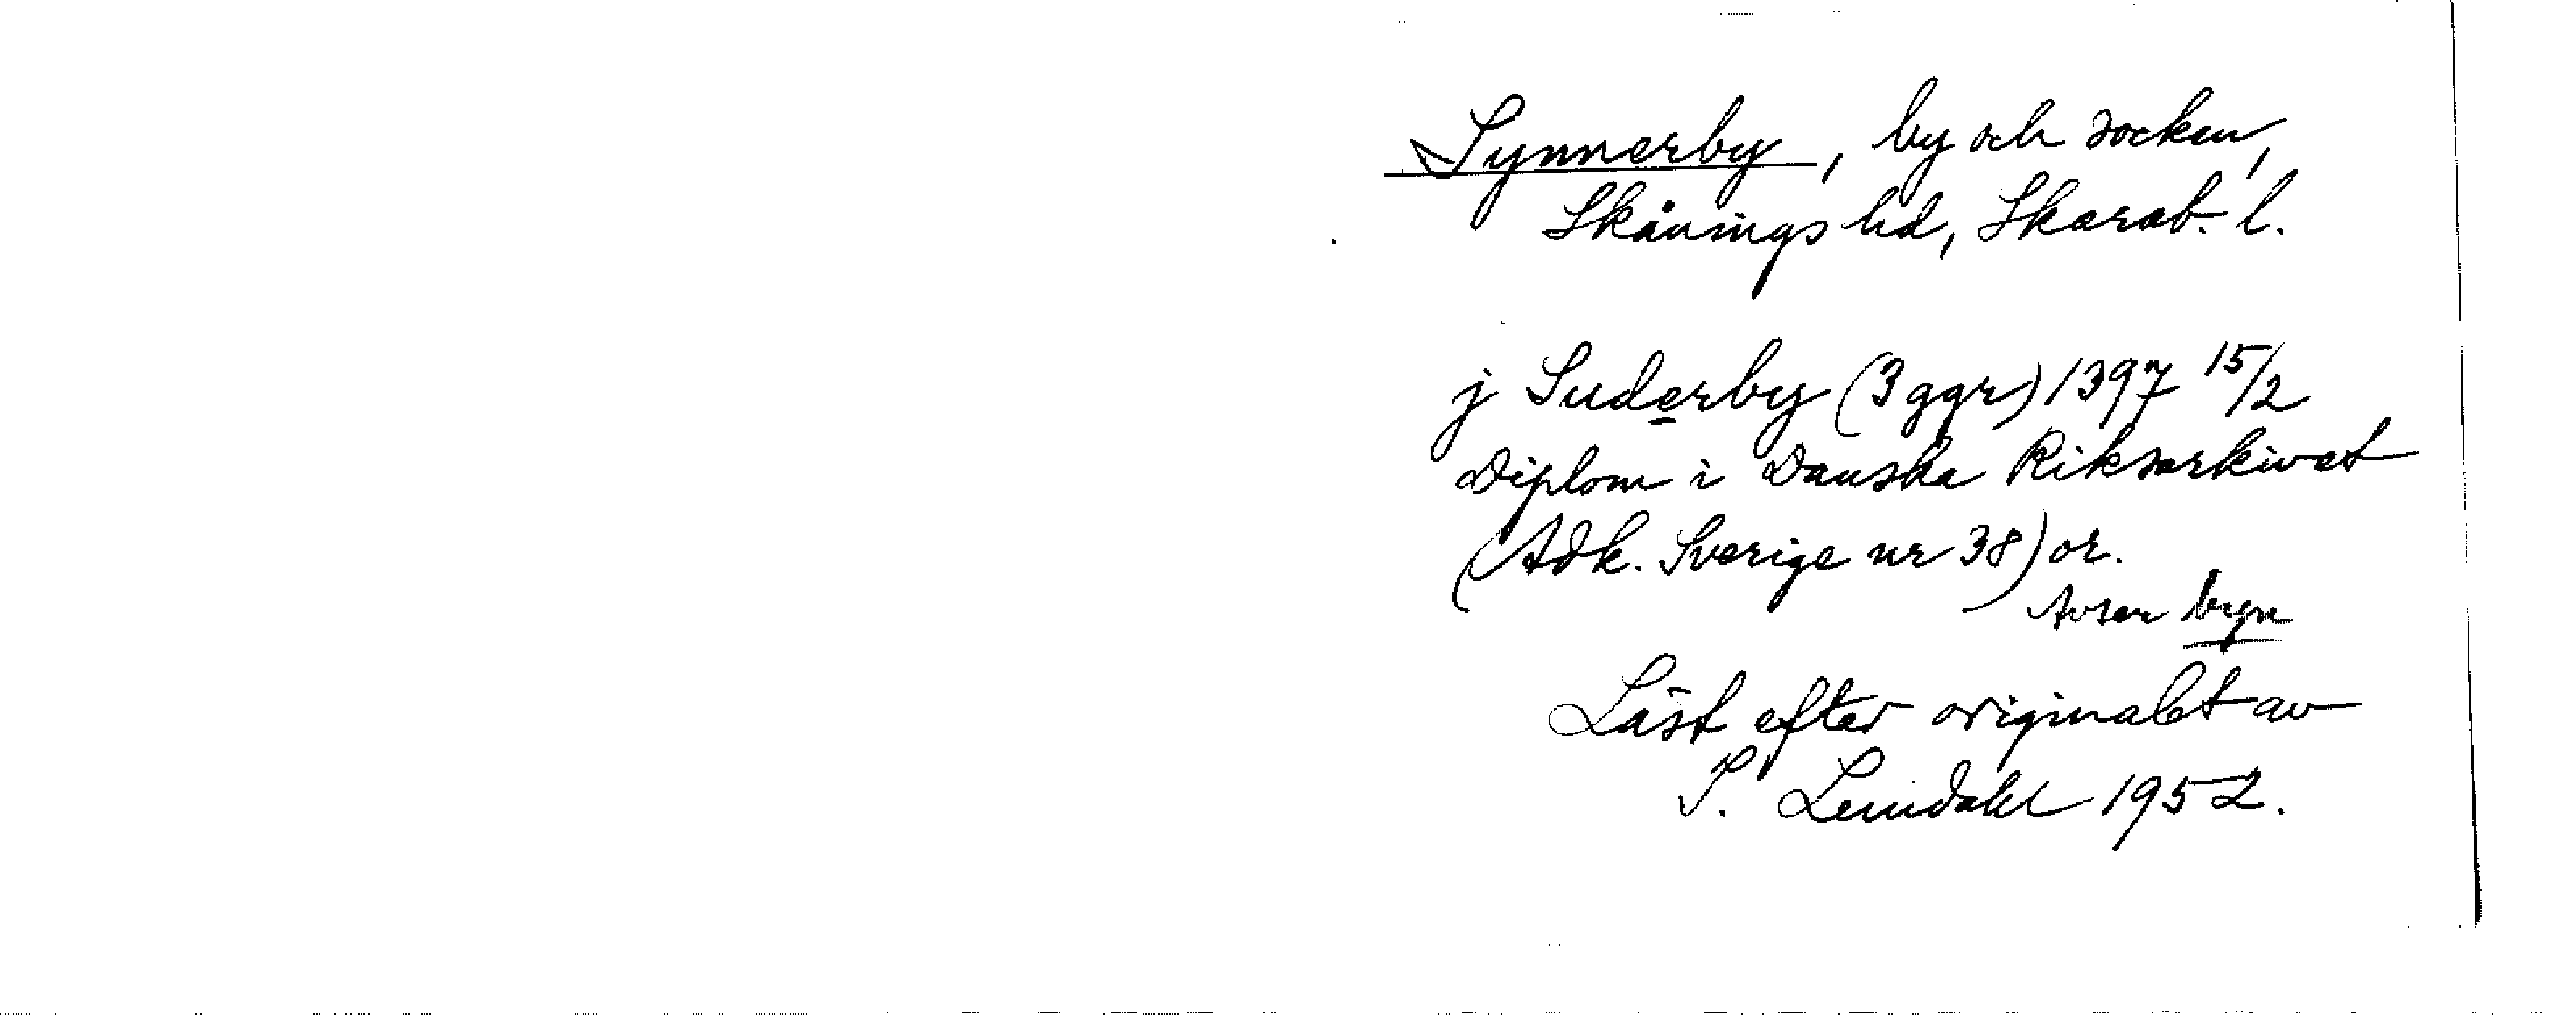 Synnerby, by och socken,
Skånings hd, Skarab. l.
j Suderby (3 ggr) 1397 15/2
Diplom i Danska Riksarkivet
(Adk. Sverige nr 38) or.
Avser byn
Läst efter originalet av
S. Lundahl 1952.